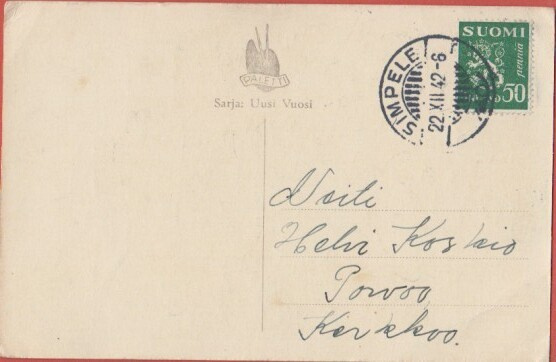 PALETTI
Sarja: Uusi Vuosi
SIMPELE
22.XII.42-6
SUOMI
pennia
50
Neiti
Helvi Koskio
Porvoo
Kerkkoo.